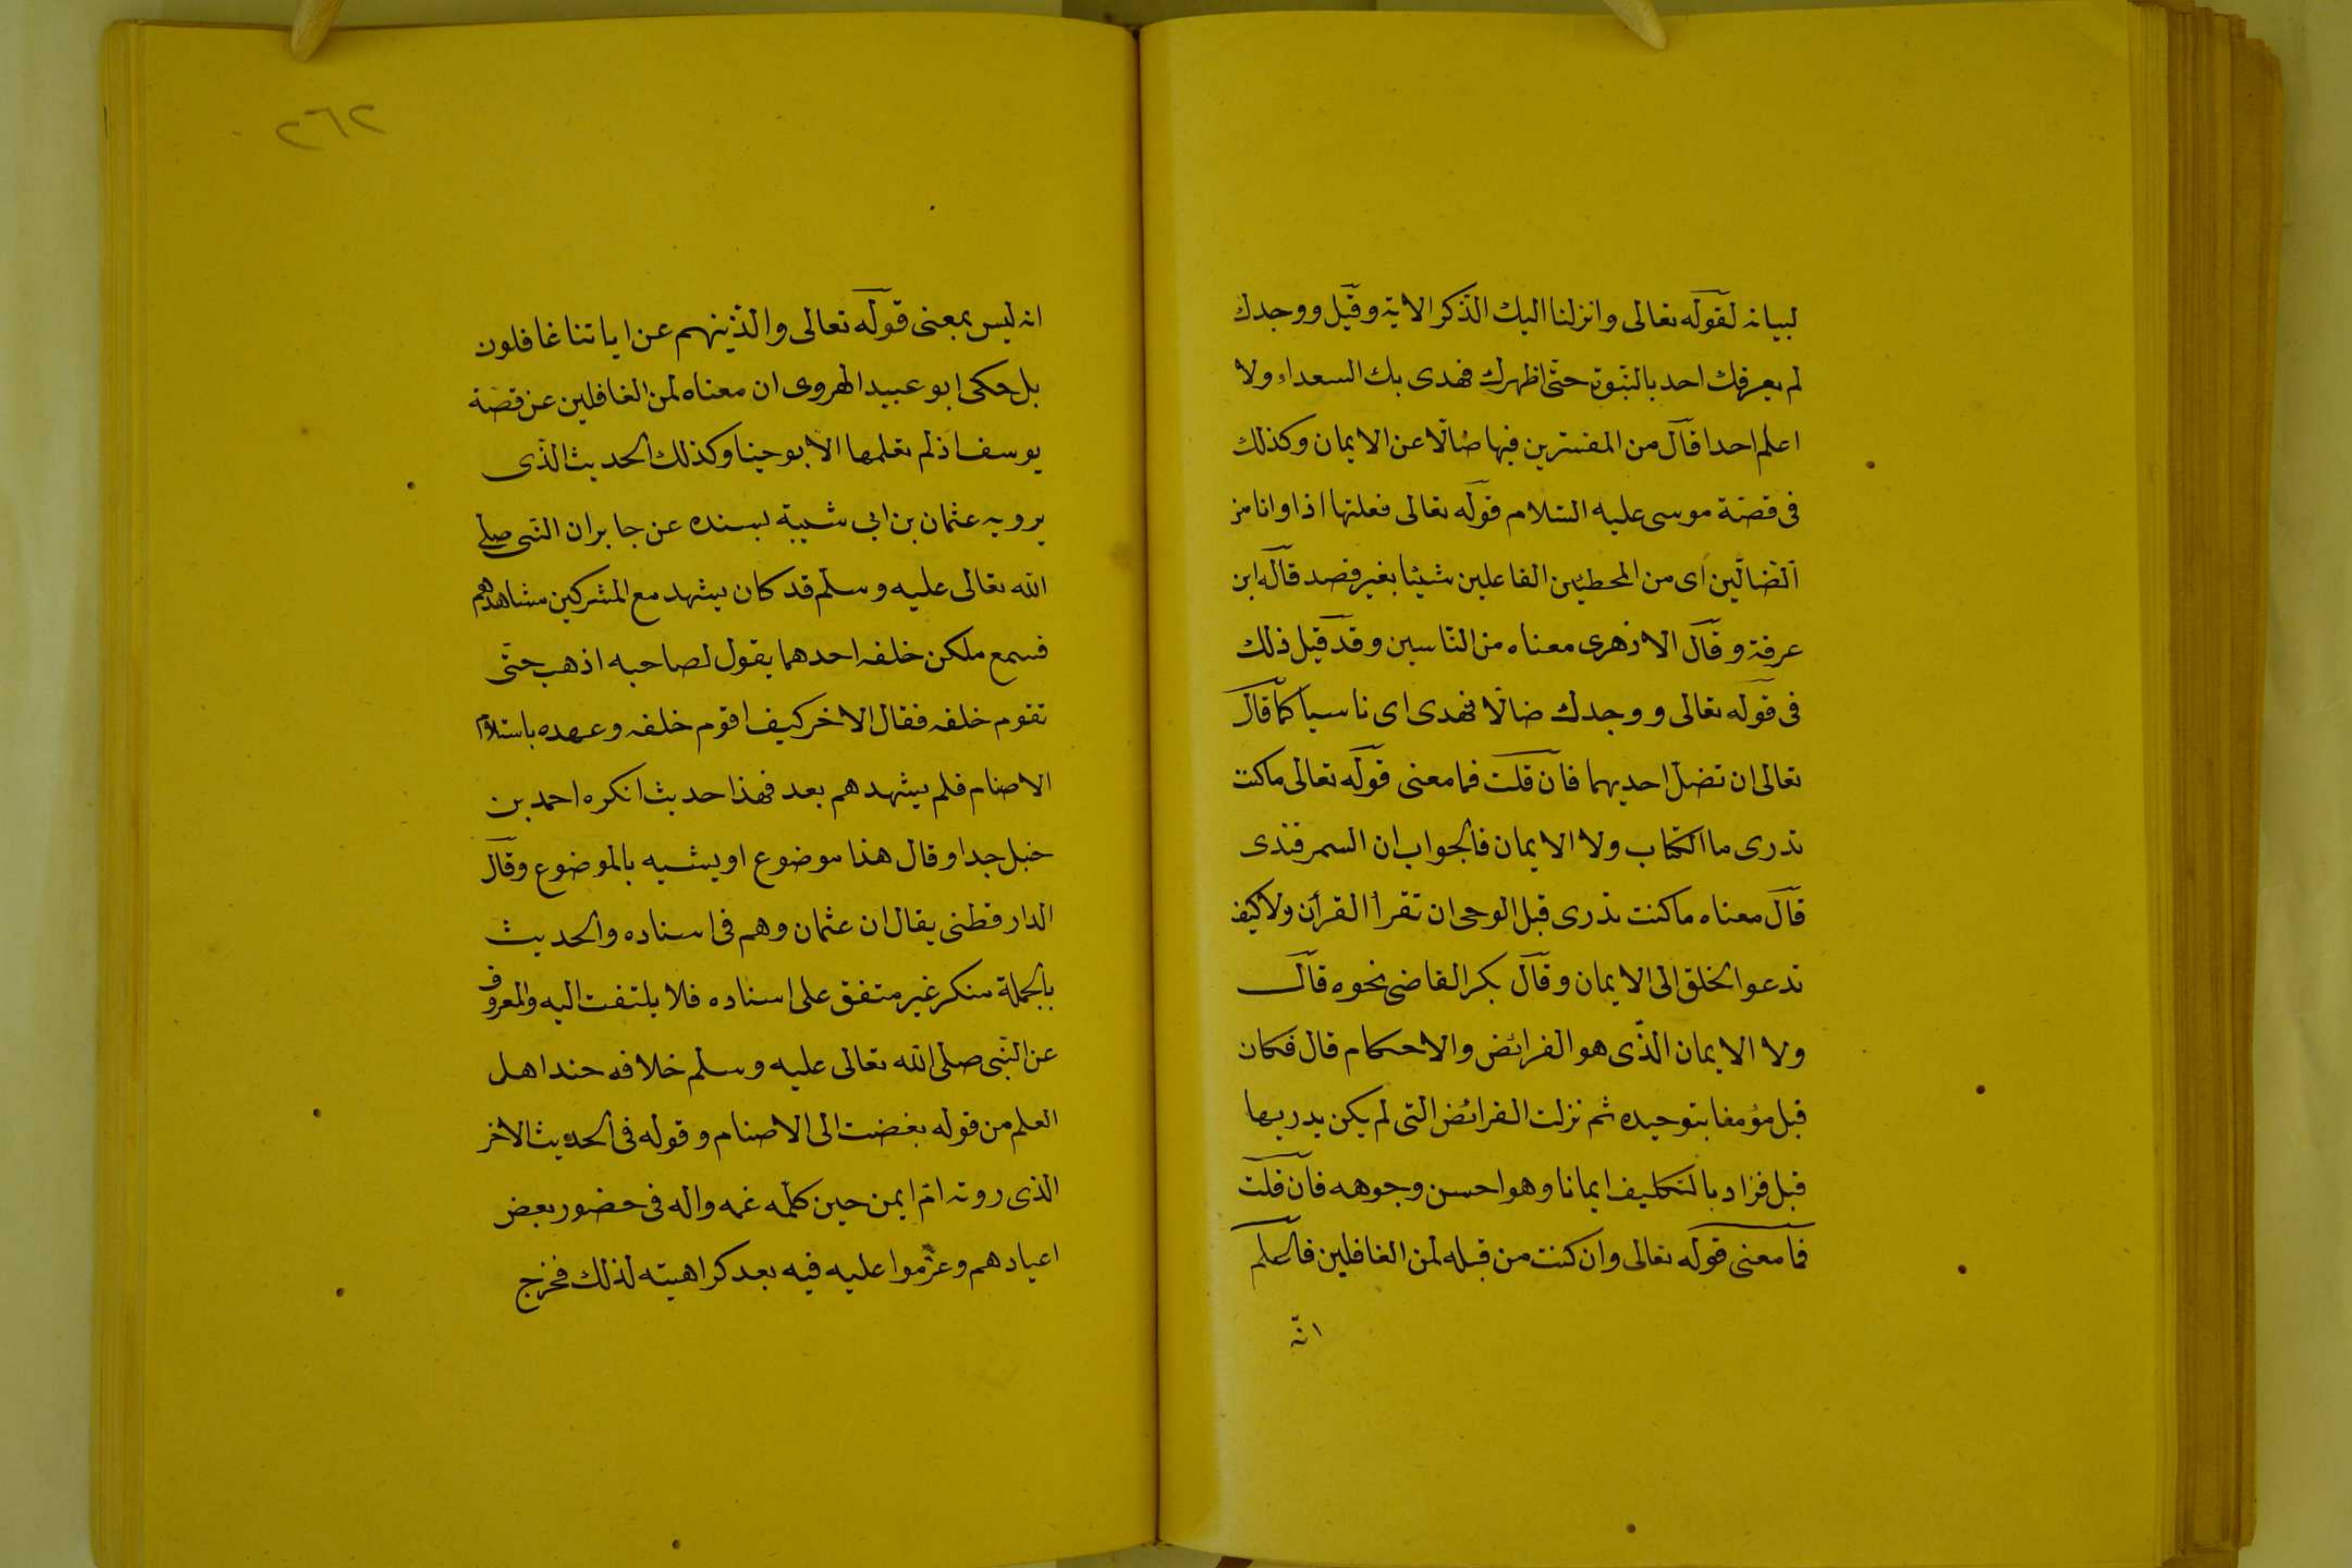 لبيانه لقوله تعالى وانزلنا اليك الذكر الاية وقيل ووجدك
لم يعرفك احد بالنبوة حتى اظهرك فهدى بك السعداء ولا
اعلم احدا قال من المفسرين فيها ضالا عن الايمان وكذلك
فى قصة موسى عليه السلام قوله تعالى فعلتها اذا وانا من
الضالين اى من المخطئين الفاعلين شيئا بغير قصد قاله ابن
عرفة وقال الازهرى معناه من الناسين وقد قيل ذلك
فى قوله تعالى ووجدك ضالا فهدى اى ناسيا كما قال
تعالى ان تضل احديهما فان قلت فما معنى قوله تعالى ماكنت
تدرى ما الكتاب ولا الايمان فالجواب ان السمرقندى
قال معناه ماكنت تدرى قبل الوحى ان تقرأ القرأن ولا كيف
تدعو الخلق الى الايمان وقال بكر القاضى نحوه قال
ولا الايمان الذى هو الفرائض والاحكام قال فكان
قبل مؤمنا بتوحيده ثم نزلت الفرائض التى لم يكن يدريها
قبل فزاد بالتكليف ايمانا وهو احسن وجوهه فان قلت
فما معنى قوله تعالى وان كنت من قبله لمن الغافلين فاعلم
انه
٢٦٢
انه ليس بمعنى قوله تعالى والذينهم عن اياتنا غافلون
بل حكى ابو عبيد الهروى ان معناه لمن الغافلين عن قصة
يوسف اذ لم تعلمها الا بوحينا وكذلك الحديث الذى
يرويه عثمان بن ابي شيبة بسنده عن جابر ان النبى صلى
الله تعالى عليه وسلم قد كان يشهد مع المشركين مشاهدهم
فسمع ملكين خلفه احدهما يقول لصاحبه اذهب حتى
تقوم خلفه فقال الاخر كيف اقوم خلفه وعهده باستلام
الاصنام فلم يشهدهم بعد فهذا حديث انكره احمد بن
حنبل جدا وقال هذا موضوع او يشبه بالموضوع وقال
الدارقطنى يقال ان عثمان وهم فى اسناده والحديث
بالجملة منكر غير متفق على اسناده فلا يلتفت اليه والمعروف
عن النبى صلى الله تعالى عليه وسلم خلافه عند اهل
العلم من قوله بغضت الى الاصنام وقوله فى الحديث الاخر
الذى روته ام ايمن حين كلمه عمه واله فى حضور بعض
اعيادهم وعزموا عليه فيه بعد كراهيته لذلك فخرج